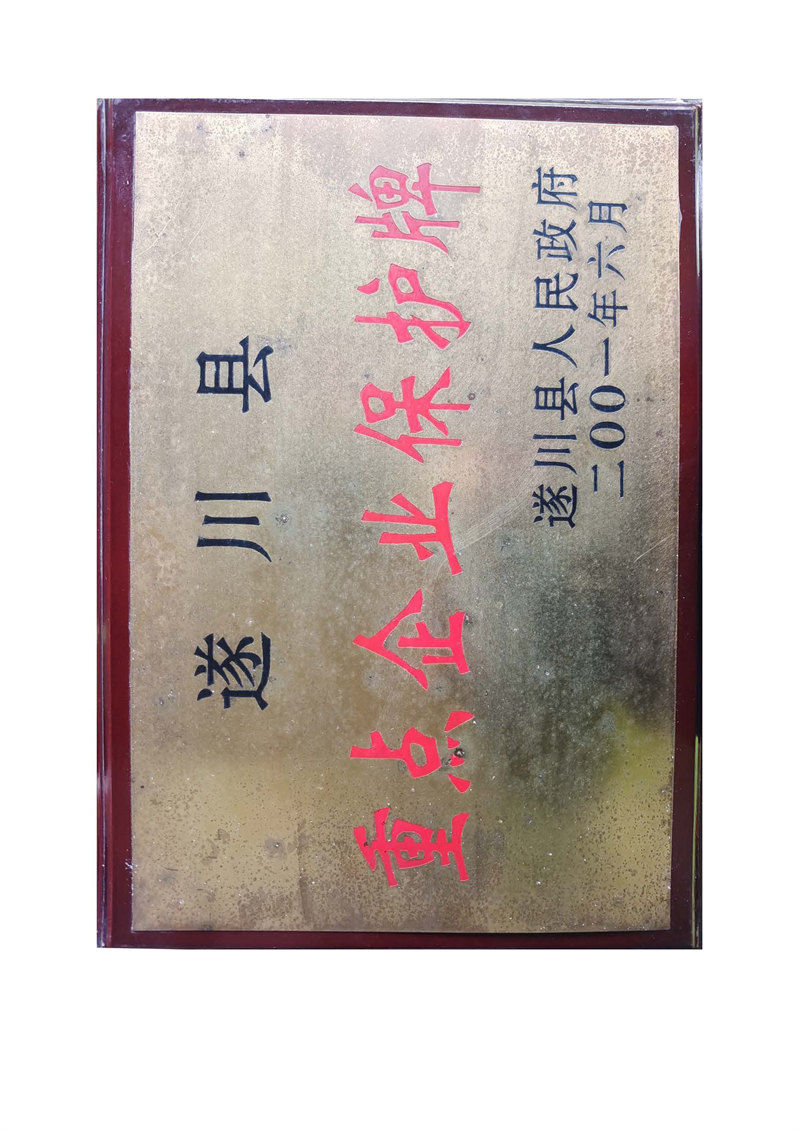 遂川县
重点企业保护牌
遂川县人民政府
二00一年六月